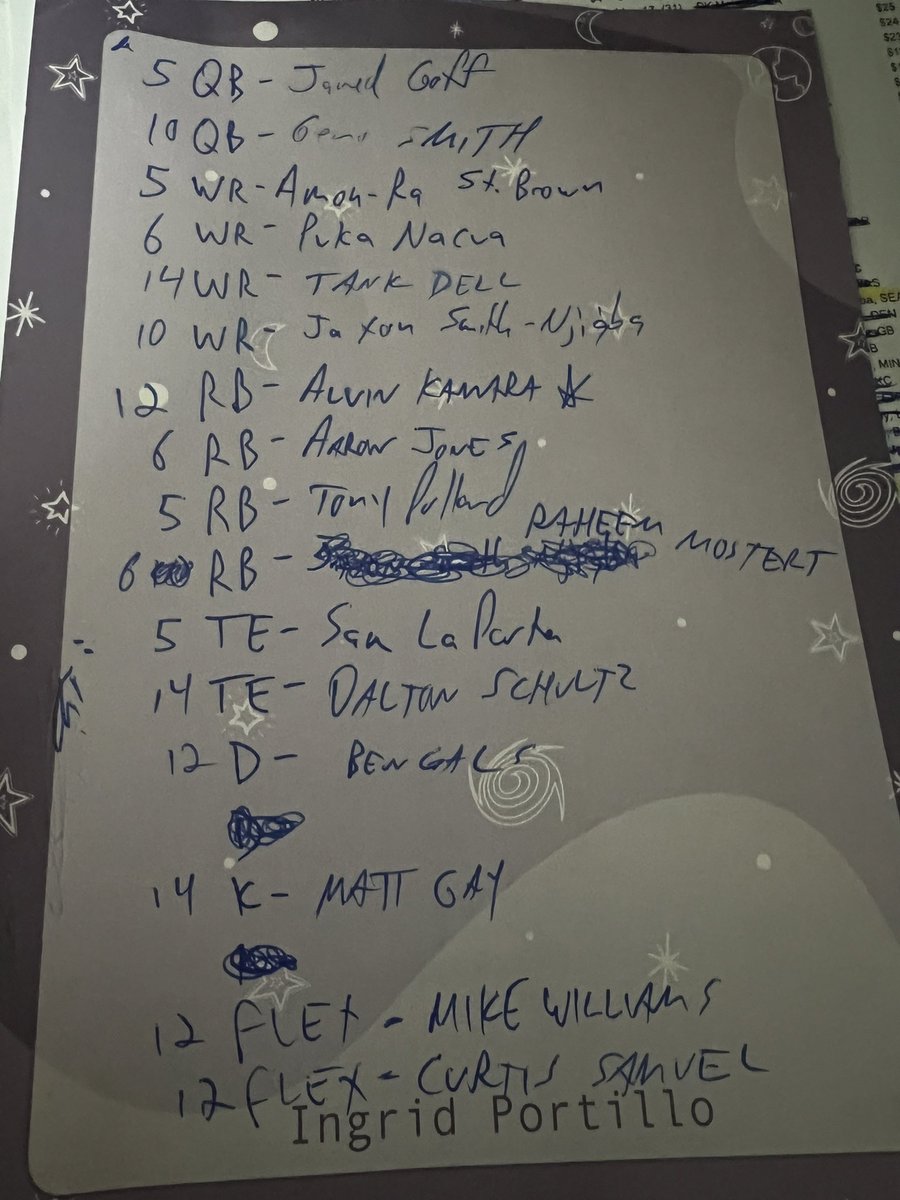 5 QB - Jared Goff
10 QB - Geno SMITH
5 WR - Amon-Ra St. Brown
6 WR - Puka Nacua
14 WR - TANK DELL
10 WR - Jaxon Smith-Njigba
12 RB - ALVIN KAMARA
6 RB - AARON JONES
5 RB - Tony Pollard
6 RB - RAHEEM MOSTERT
5 TE - Sam LaPorta
14 TE - DALTON SCHULTZ
12 D - BENGALS
14 K - MATT GAY
12 FLEX - MIKE WILLIAMS
12 FLEX - CURTIS SAMUEL
Ingrid Portillo
$25
$24
SEA
GB
MIN